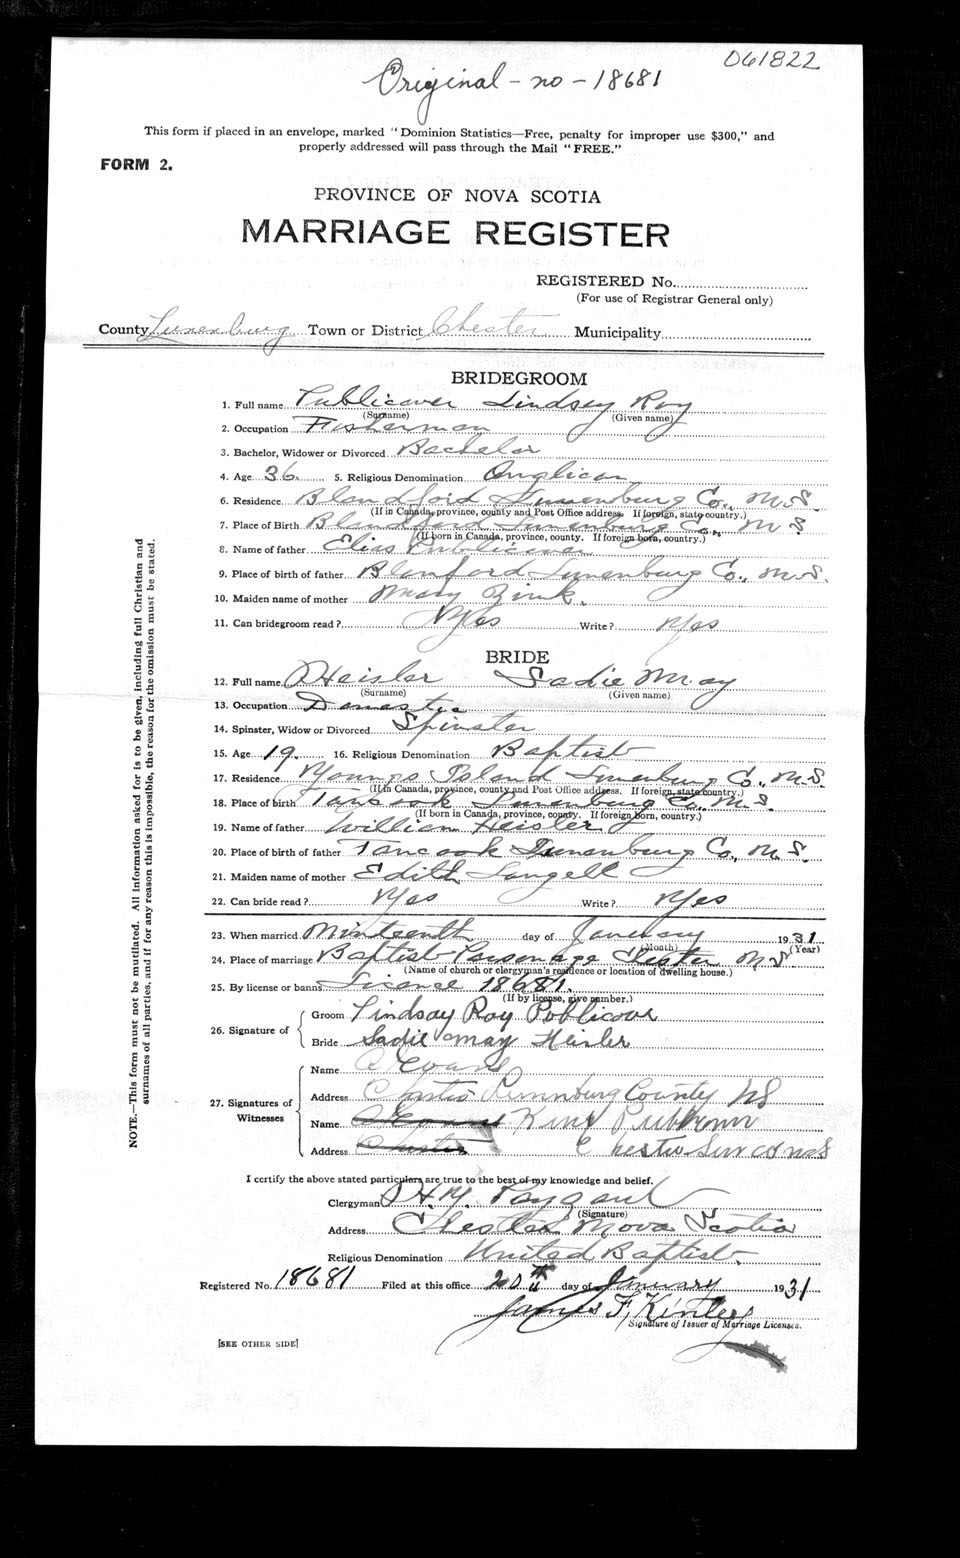 061822
Original - no - 18681
This form if placed in an envelope, marked "Dominion Statistics—Free, penalty for improper use $300," and
properly addressed will pass through the Mail "FREE."
FORM 2.
PROVINCE OF NOVA SCOTIA
MARRIAGE REGISTER
REGISTERED No.
(For use of Registrar General only)
County Lunenburg Town or District Chester Municipality
BRIDEGROOM
1. Full name Publicover Lindsey Roy
(Surname) (Given name)
2. Occupation Fisherman
3. Bachelor, Widower or Divorced Bachelor
4. Age 36. 5. Religious Denomination Anglican
6. Residence Blandford Lunenburg Co., N.S.
(If in Canada, province, county and Post Office address. If foreign, state country.)
7. Place of Birth Blandford Lunenburg Co., N.S.
(If born in Canada, province, county. If foreign born, country.)
8. Name of father Elias Publicover
9. Place of birth of father Blanford Lunenburg Co., N.S.
10. Maiden name of mother Mary Zink.
11. Can bridegroom read? Yes Write? Yes
BRIDE
12. Full name Heisler Sadie May
(Surname) (Given name)
13. Occupation Domestic
14. Spinster, Widow or Divorced Spinster
15. Age 19. 16. Religious Denomination Baptist
17. Residence Youngs Island Lunenburg Co., N.S.
(If in Canada, province, county and Post Office address. If foreign, state country.)
18. Place of birth Tancook Lunenburg Co., N.S.
(If born in Canada, province, county. If foreign born, country.)
19. Name of father William Heisler
20. Place of birth of father Tancook Lunenburg Co., N.S.
21. Maiden name of mother Edith Langell
22. Can bride read? Yes Write? Yes
23. When married Ninteenth day of January 1931
(Month) (Year)
24. Place of marriage Baptist Parsonage Chester N.S.
(Name of church or clergyman's residence or location of dwelling house.)
25. By license or banns Licence 18681.
(If by license, give number.)
26. Signature of
Groom Lindsay Roy Publicover
Bride Sadie May Heisler
27. Signatures of Witnesses
Name A Evans
Address Chester Lunenburg County NS
Name A Evans King
Address Chester Chester Lun Co NS
I certify the above stated particulars are true to the best of my knowledge and belief.
Clergyman H.M.
(Signature)
Address Chester Nova Scotia
Religious Denomination United Baptist
Registered No. 18681 Filed at this office 20th day of January 1931
James F. Kinley
Signature of Issuer of Marriage Licenses.
[SEE OTHER SIDE]
NOTE.—This form must not be mutilated. All information asked for is to be given, including full Christian and
surnames of all parties, and if for any reason this is impossible, the reason for the omission must be stated.